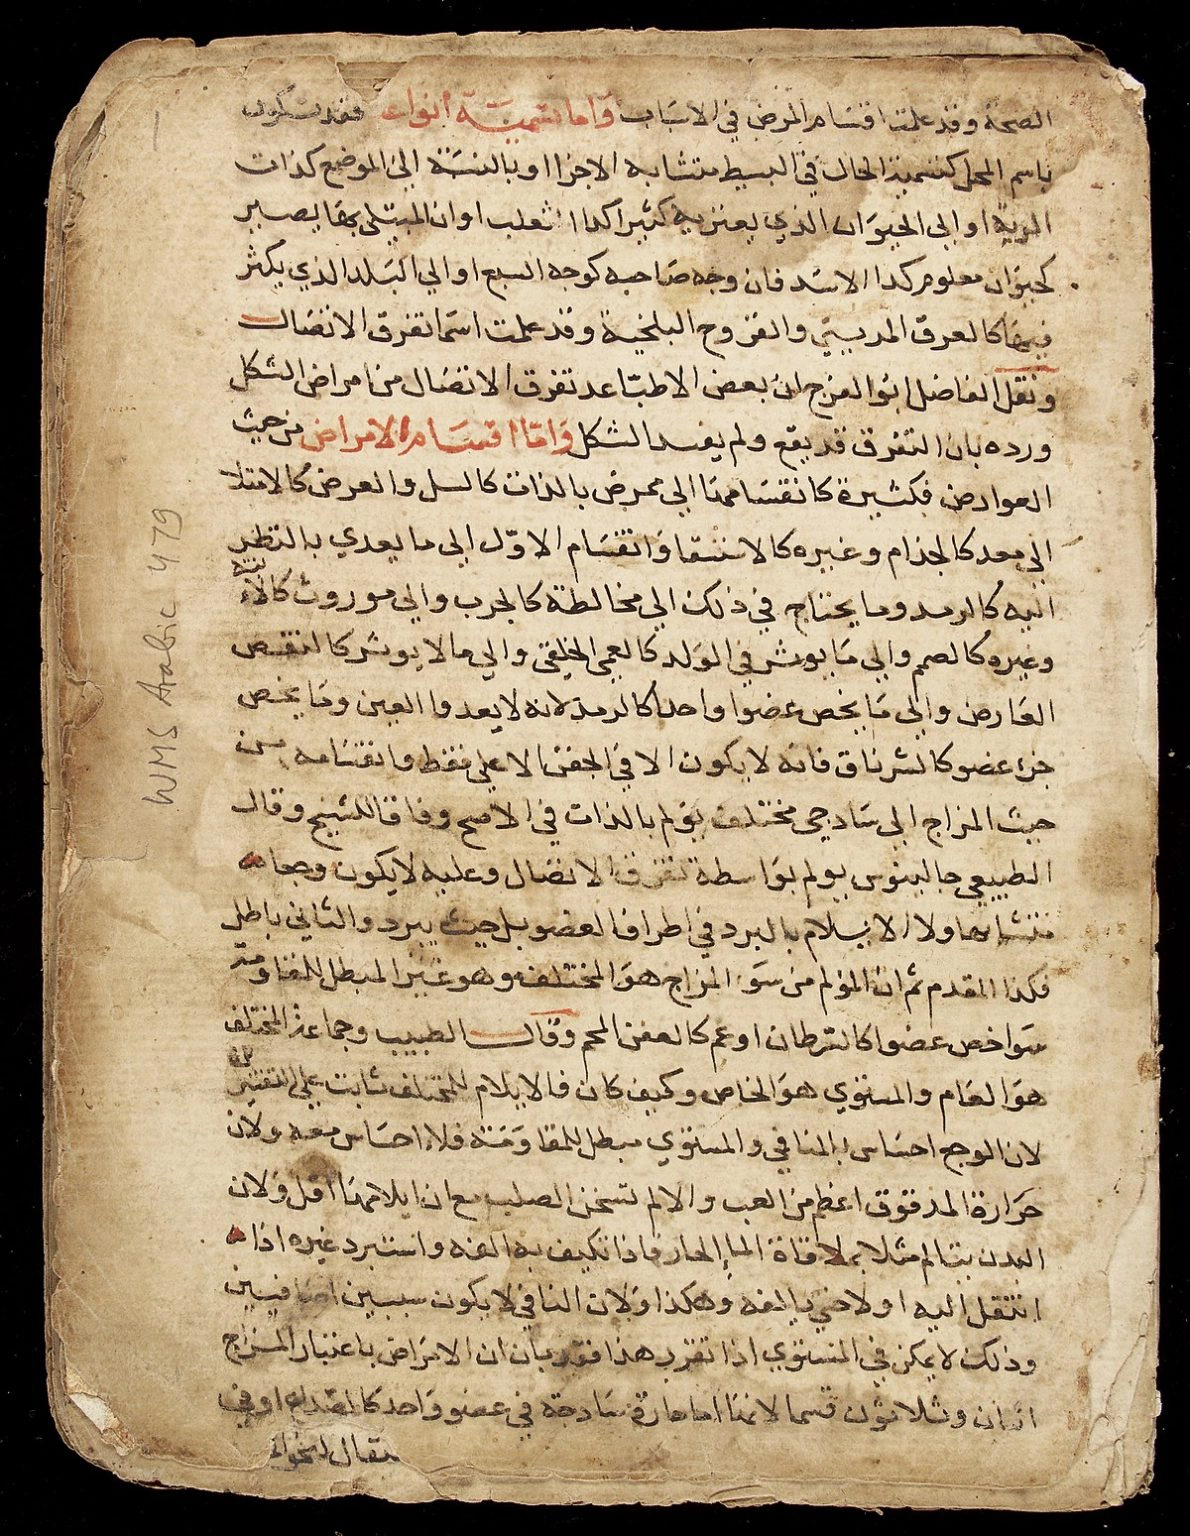 الصحة وقد علمت اقسام المرض في الاسباب واما تسمية انواعه فقد تكون
باسم المحل كتسمية الحال في البسيط متشابه الاجزا او بالنسبة الي الموضع كذات
الرية او الي الحيوان الذي يعتريه كثيرا كداء الثعلب او ان المبتلي بها يصير
كحيوان معلوم كدا الاسد فان وجه صاحبه كوجه السبع او الي البلد الذي يكثر
فيها كالعرق المديني والقروح البلخية وقد علمت اسما تفرق الاتصال
ونقل الفاضل ابو الفرج ان بعض الاطبا عد تفرق الاتصال من امراض الشكل
ورده بان التفرق قد يقع ولم يفسد الشكل واما اقسام الامراض من حيث
العوارض فكثيرة كانقسامها الي ممرض بالذات كالسل والعرض كالامتلا
الي معد كالجذام وغيره كالاستسقا وانقسام الاول الي ما يعدي بالنظر
اليه كالرمد وما يحتاج في ذلك الي مخالطة كالجرب والي موروث
وغيره كالصمم والي ما يوثر في الولد كالعمي الخلقي والي ما لا يوثر كالنقص
العارض والي ما يخص عضوا واحدا كالرمد لانه لا يعدوا العين وما يخص
جزء عضو كالشرناق فانه لا يكون الا في الجفن الاعلي فقط وانقسامه من
حيث المزاج الي سادجي مختلف يولم بالذات في الاصح وفاقا للشيخ وقال
الطبيعي جالينوس يولم بواسطة تفرق الاتصال وعليه لا يكون وجعا
متشابها ولا الايلام بالبرد في اطراف العضو بل حيث يبرد والثاني باطل
فكذا المقدم ثم ان المولم من سوء المزاج هو المختلف وهو غير المبطل للمقاومة
سوا خص عضوا كالسرطان او عم كالعفن المحم وقال الطبيب وجماعة المختلف
هو العام والمستوي هو الخاص وكيف كان فالايلام للمختلف ثابت علي التفسيرين
لان الوجع احساس بالمنافي والمستوي مبطل للمقاومة فلا احساس معه ولان
حرارة المدقوق اعظم من الغب والا لم تسخن الصلب مع ان ايلامها اقل ولان
البدن يتالم مثلا بملاقاة الماء الحار فاذا تكيف به الفه واستبرد غيره اذا
انتقل اليه اولا حتي يالفه وهكذا ولان النافي لا يكون سببين اضافيين
وذلك لا يمكن في المستوي اذا تقرر هذا فقد بان ان الامراض باعتبار المزاج
اثنان وثلاثون قسما لانها اما حارة سادجة في عضو واحد كالصداع او في